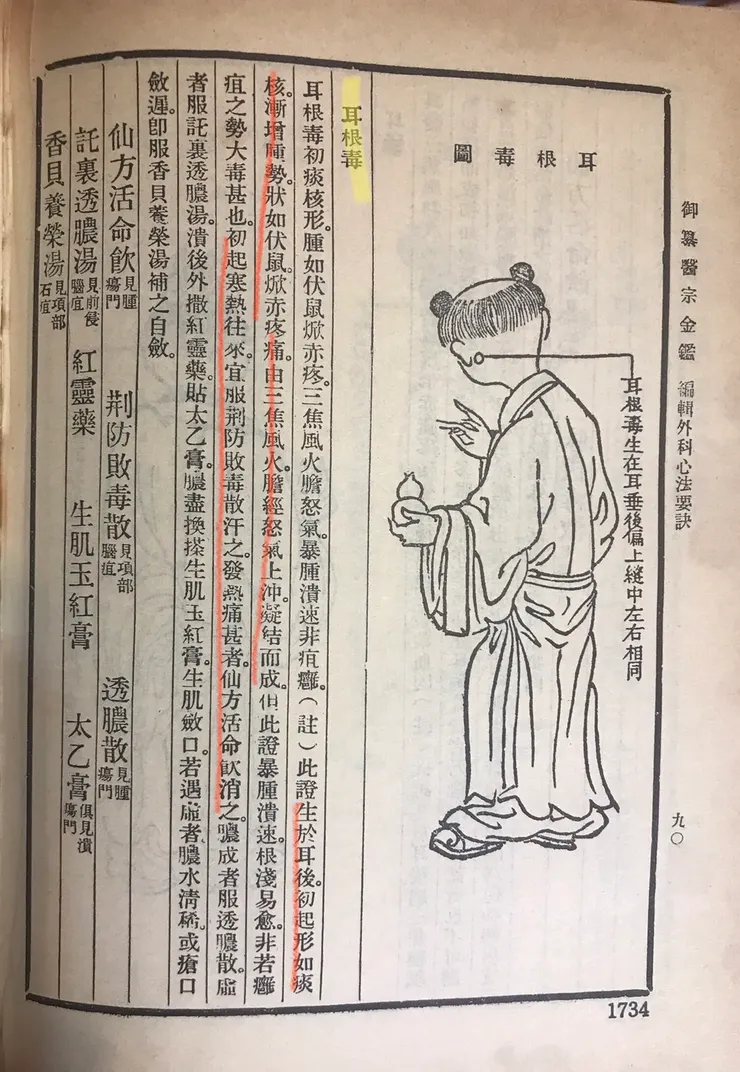 御纂醫宗金鑑 編輯外科心法要訣
九〇
耳根毒圖
耳根毒生在耳垂後偏上縫中左右相同
耳根毒
耳根毒初痰核形。腫如伏鼠焮赤疼。三焦風火膽怒氣。暴腫潰速非疽癰。(註)此證生於耳後。初起形如痰
核。漸增腫勢。狀如伏鼠。焮赤疼痛。由三焦風火。膽經怒氣上沖。凝結而成。但此證暴腫潰速。根淺易愈。非若癰
疽之勢大毒甚也。初起寒熱往來。宜服荆防敗毒散汗之。發熱痛甚者。仙方活命飲消之。膿成者服透膿散。虛
者服託裏透膿湯。潰後外撒紅靈藥。貼太乙膏。膿盡換搽生肌玉紅膏。生肌斂口。若遇虛者。膿水清稀。或瘡口
斂遲。卽服香貝養榮湯補之自斂。
仙方活命飲 見腫瘍門 荆防敗毒散 見項部腦疽 透膿散 見腫瘍門
託裏透膿湯 見前侵腦疽 紅靈藥 生肌玉紅膏 太乙膏 俱見潰瘍門
香貝養榮湯 見項部石疽
1734